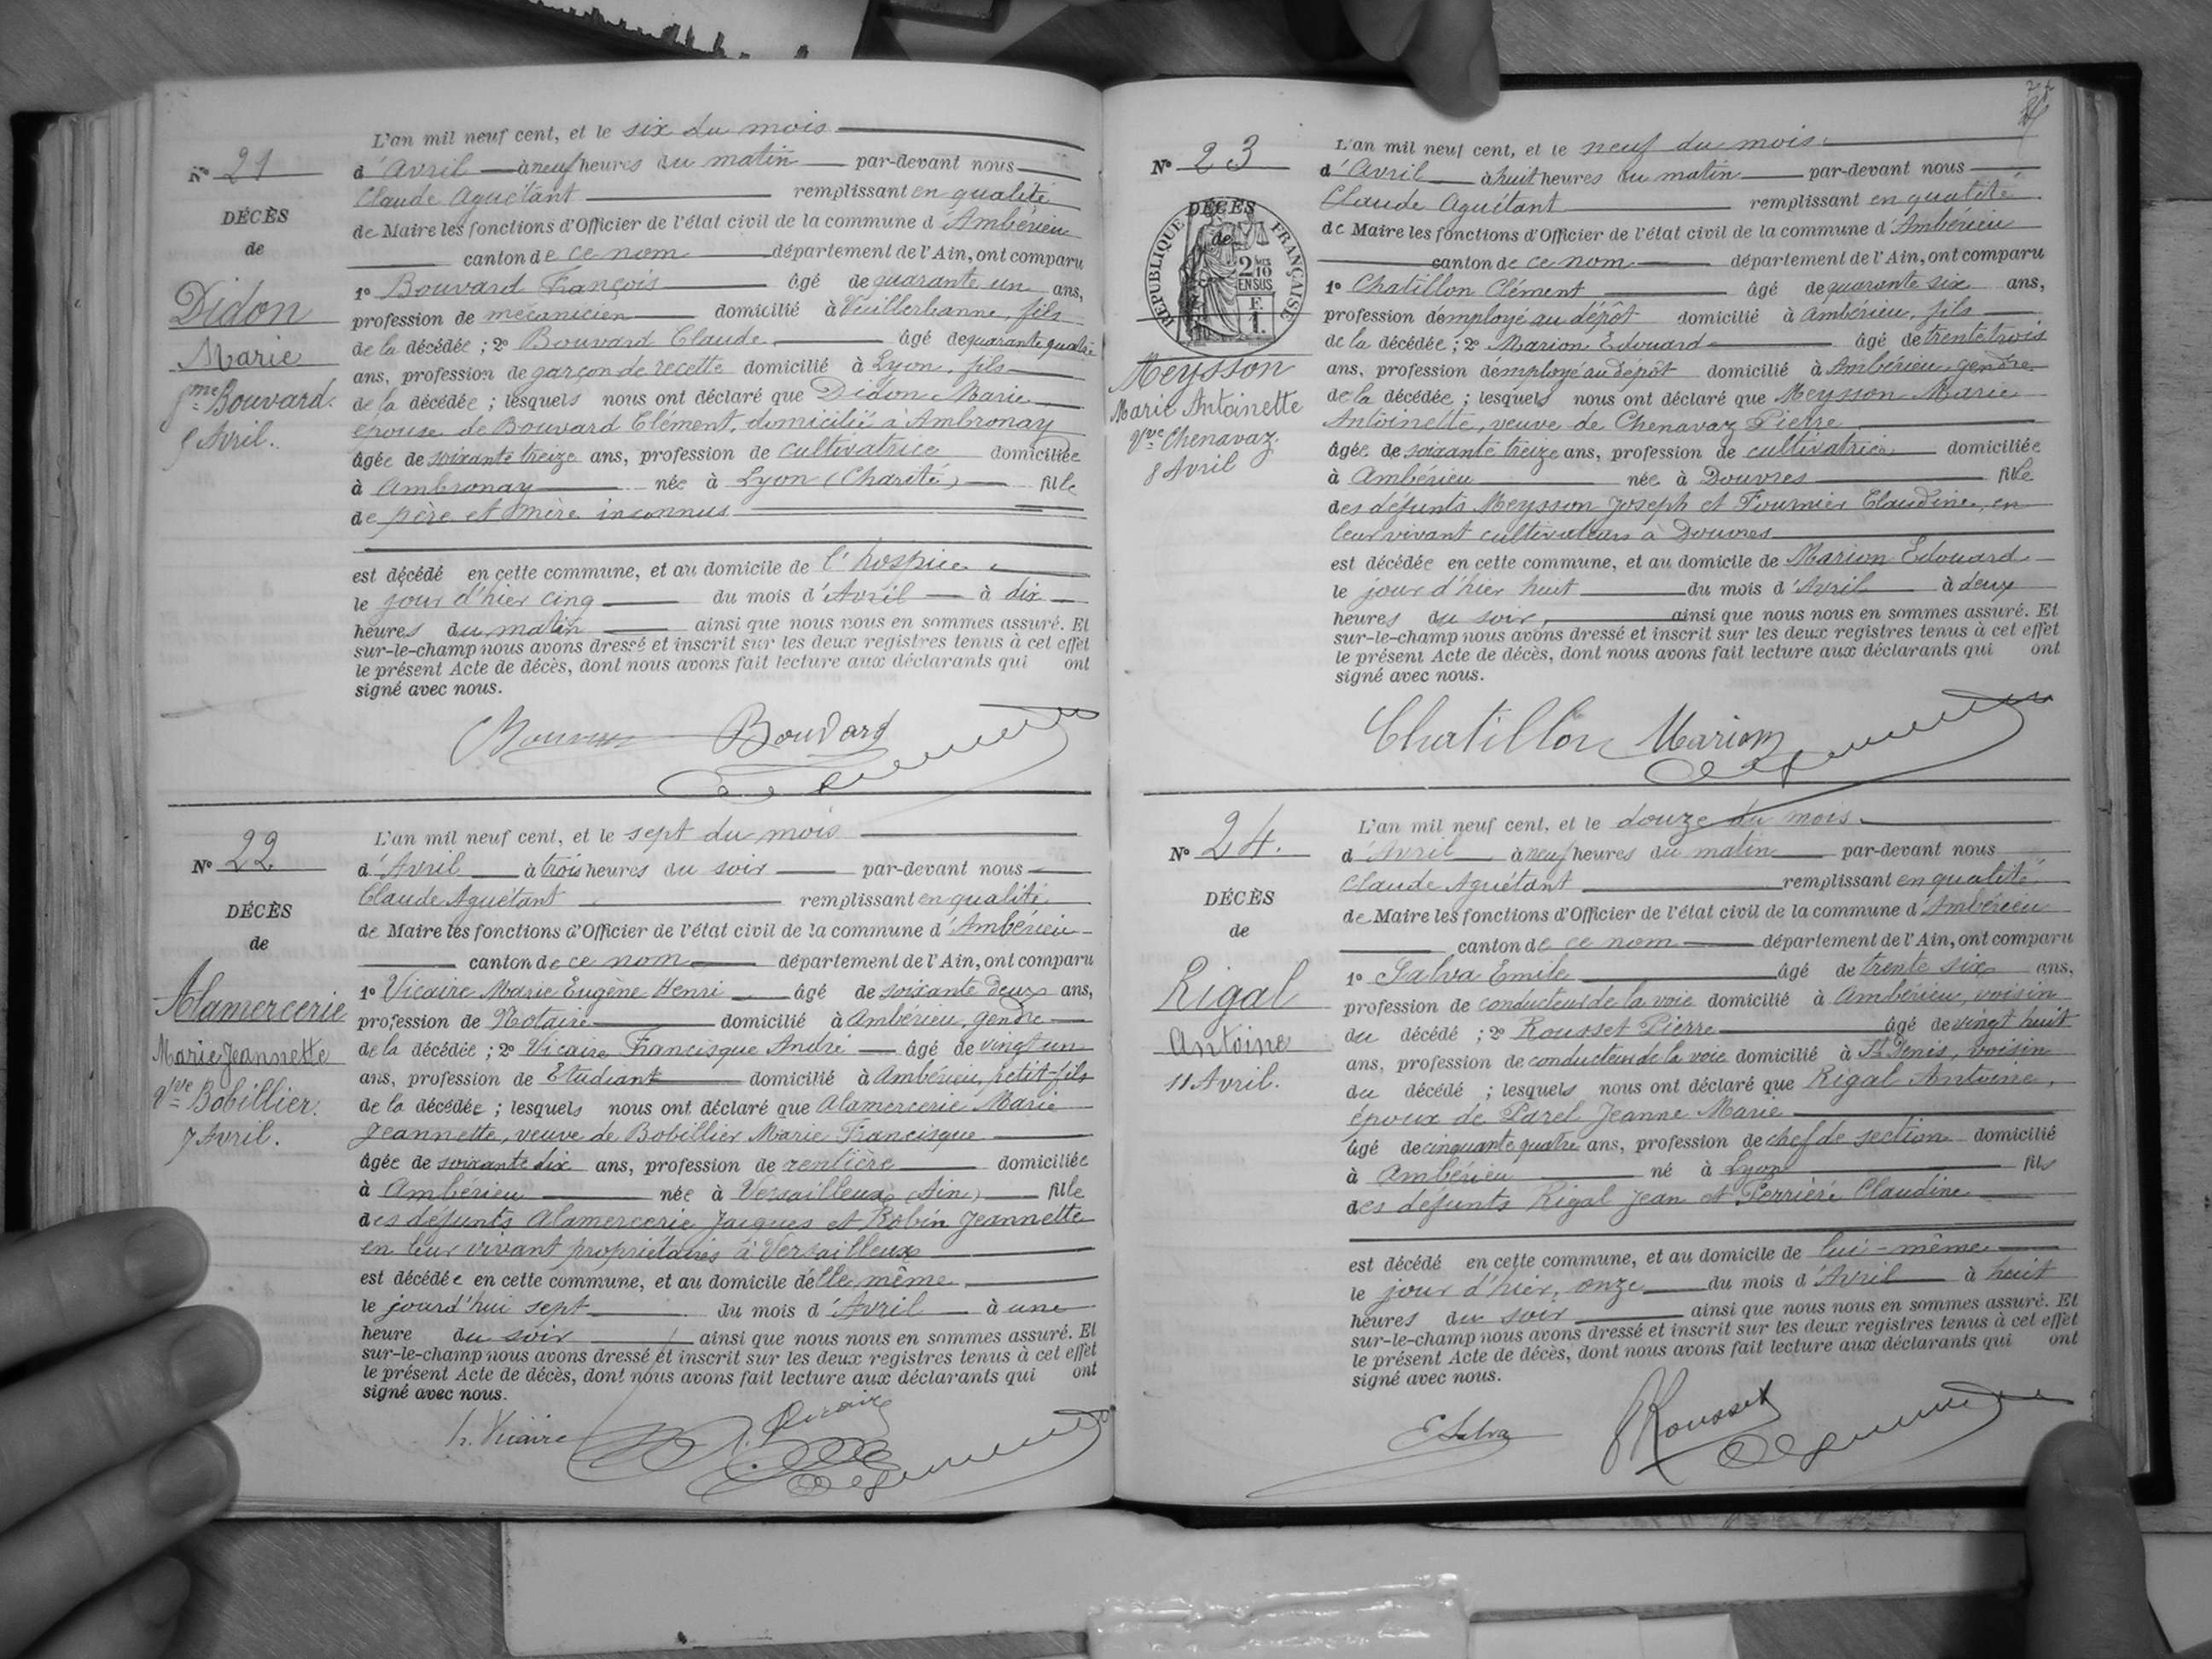 L'an mil neuf cent, et le six du mois
Nº 21
d'Avril à neuf heures du matin par-devant nous
Claude Aguétant remplissant en qualité
DÉCÈS
de Maire les fonctions d'Officier de l'état civil de la commune d'Ambérieu
de
canton de ce nom département de l'Ain, ont comparu
1º Bouvard François âgé de quarante un ans,
Didon
profession de mécanicien domicilié à Veuillerbanne, fils
Marie
de la décédée ; 2º Bouvard Claude âgé de quarante quatre
ans, profession de garçon de recette domicilié à Lyon, fils
fme Bouvard.
de la décédée ; lesquels nous ont déclaré que Didon Marie
5 Avril.
épouse de Bouvard Clément, domicilié à Ambronay
âgée de soixante treize ans, profession de cultivatrice domiciliée
à Ambronay née à Lyon (Charité) fille
de père et mère inconnus
est décédé en cette commune, et au domicile de l'hospice
le jour d'hier cinq du mois d'Avril à dix
heures du matin ainsi que nous nous en sommes assuré. Et
sur-le-champ nous avons dressé et inscrit sur les deux registres tenus à cet effet
le présent Acte de décès, dont nous avons fait lecture aux déclarants qui ont
signé avec nous.
Bouvard
L'an mil neuf cent, et le sept du mois
Nº 22
d'Avril à trois heures du soir par-devant nous
Claude Aguétant remplissant en qualité
DÉCÈS
de Maire les fonctions d'Officier de l'état civil de la commune d'Ambérieu
de
canton de ce nom département de l'Ain, ont comparu
1º Vicaire Marie Eugène Henri âgé de soixante deux ans,
Alamercerie
profession de Notaire domicilié à Ambérieu, gendre
Marie Jeannette
de la décédée ; 2º Vicaire Francisque André âgé de vingt un
ans, profession de Etudiant domicilié à Ambérieu, petit-fils
Vve Bobillier.
de la décédée ; lesquels nous ont déclaré que Alamercerie Marie
7 Avril.
Jeannette, veuve de Bobillier Marie Francisque
âgée de soixante dix ans, profession de rentière domiciliée
à Ambérieu née à Versailleux (Ain) fille
des défunts Alamercerie Jacques et Robin Jeannette
en leur vivant propriétaires à Versailleux
est décédée en cette commune, et au domicile d'elle même
le jourd'hui sept du mois d'Avril à une
heure du soir ainsi que nous nous en sommes assuré. Et
sur-le-champ nous avons dressé et inscrit sur les deux registres tenus à cet effet
le présent Acte de décès, dont nous avons fait lecture aux déclarants qui ont
signé avec nous.
h. Vicaire
L'an mil neuf cent, et le neuf du mois
Nº 23
d'Avril à huit heures du matin par-devant nous
Claude Aguétant remplissant en qualité
DÉCÈS
de
RÉPUBLIQUE FRANÇAISE
2 10
EN SUS
de Maire les fonctions d'Officier de l'état civil de la commune d'Ambérieu
canton de ce nom département de l'Ain, ont comparu
1º Chatillon Clément âgé de quarante six ans,
profession d'employé au dépôt domicilié à Ambérieu, fils
de la décédée ; 2º Marion Edouard âgé de trente trois
Meysson
ans, profession d'employé au dépôt domicilié à Ambérieu, gendre
Marie Antoinette
de la décédée ; lesquels nous ont déclaré que Meysson Marie
Vve Chenavaz.
Antoinette, veuve de Chenavaz Pierre
8 Avril
âgée de soixante treize ans, profession de cultivatrice domiciliée
à Ambérieu née à Douvres fille
des défunts Meysson Joseph et Fournier Claudine, en
leur vivant cultivateurs à Douvres
est décédée en cette commune, et au domicile de Marion Edouard
le jour d'hier huit du mois d'Avril à deux
heures du soir, ainsi que nous nous en sommes assuré. Et
sur-le-champ nous avons dressé et inscrit sur les deux registres tenus à cet effet
le présent Acte de décès, dont nous avons fait lecture aux déclarants qui ont
signé avec nous.
Chatillon Marion
L'an mil neuf cent, et le douze du mois
Nº 24.
d'Avril à neuf heures du matin par-devant nous
Claude Aguétant remplissant en qualité
DÉCÈS
de Maire les fonctions d'Officier de l'état civil de la commune d'Ambérieu
de
canton de ce nom département de l'Ain, ont comparu
1º Salva Emile âgé de trente six ans,
Rigal
profession de conducteur de la voie domicilié à Ambérieu, voisin
du décédé ; 2º Rousset Pierre âgé de vingt huit
Antoine
ans, profession de conducteur de la voie domicilié à St Denis, voisin
11 Avril.
du décédé ; lesquels nous ont déclaré que Rigal Antoine,
époux de Parel Jeanne Marie
âgé de cinquante quatre ans, profession de chef de section domicilié
à Ambérieu né à Lyon fils
des défunts Rigal Jean et Perrière Claudine
est décédé en cette commune, et au domicile de lui-même
le jour d'hier, onze du mois d'Avril à huit
heures du soir ainsi que nous nous en sommes assuré. Et
sur-le-champ nous avons dressé et inscrit sur les deux registres tenus à cet effet
le présent Acte de décès, dont nous avons fait lecture aux déclarants qui ont
signé avec nous.
E Salva Rousset